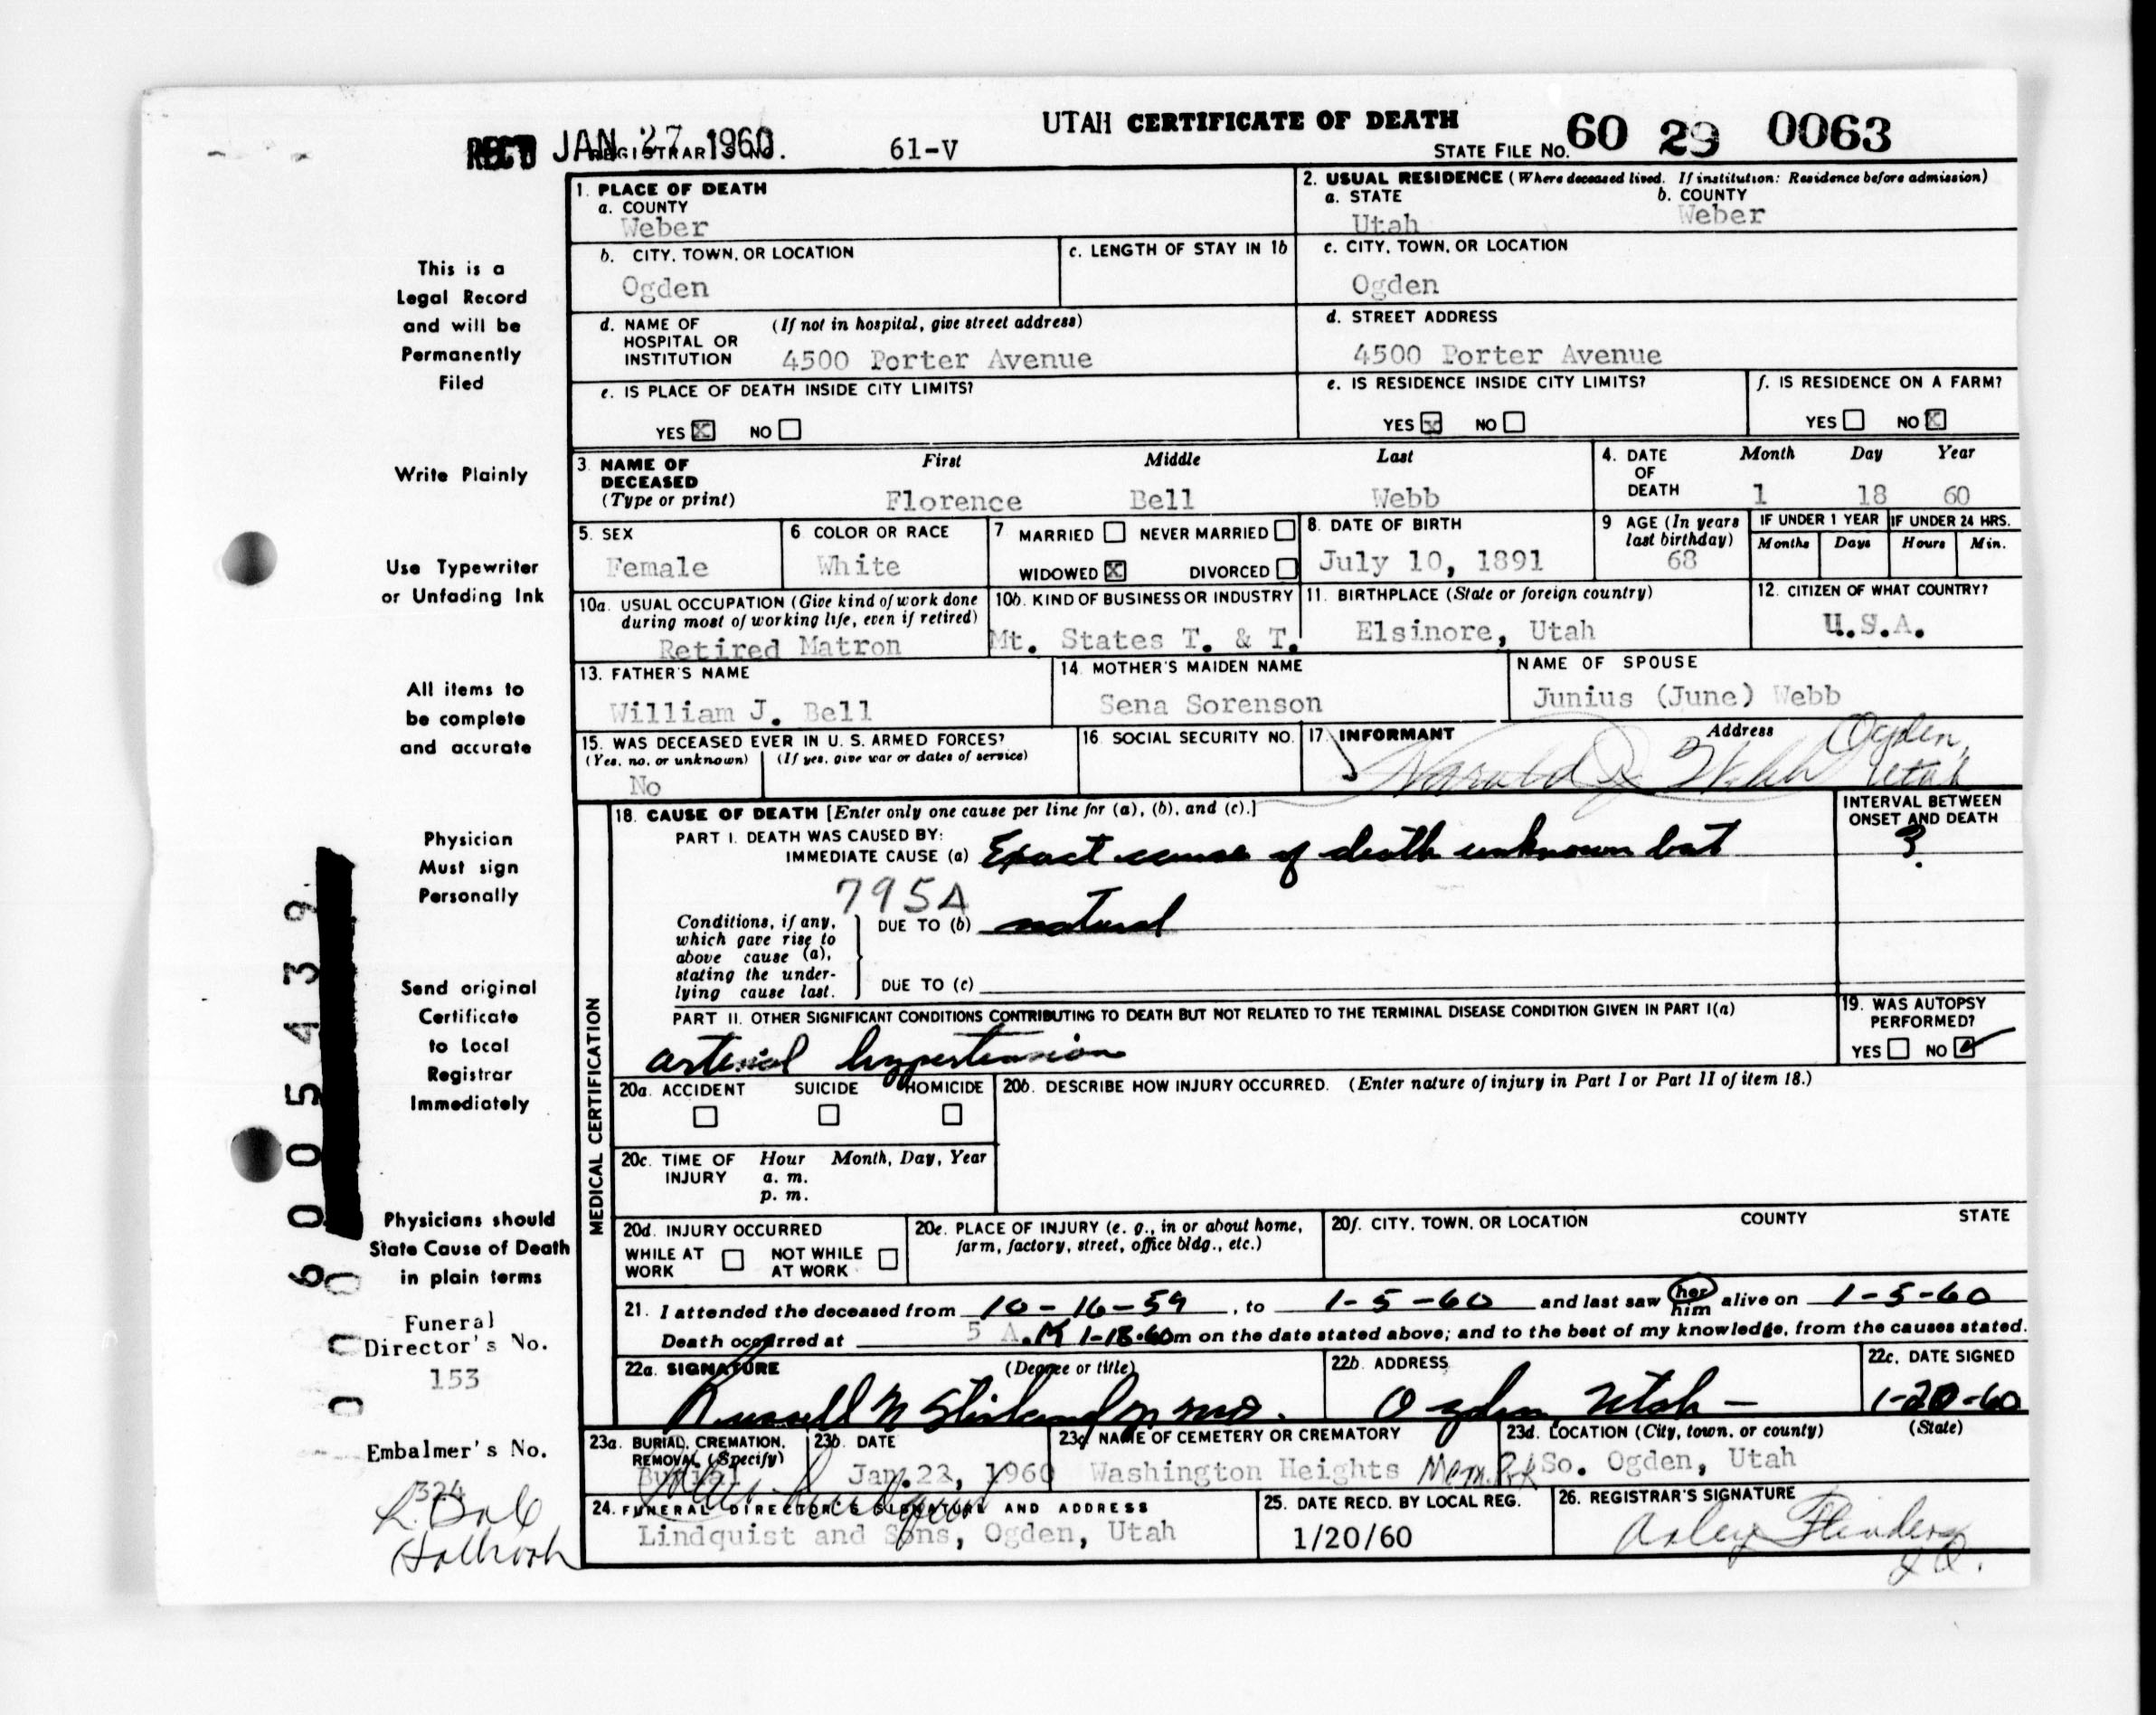 UTAH CERTIFICATE OF DEATH
REC'D JAN 27 1960
REGISTRAR'S NO. 61-V
STATE FILE NO. 60 29 0063
1. PLACE OF DEATH
a. COUNTY
Weber
2. USUAL RESIDENCE (Where deceased lived. If institution: Residence before admission)
a. STATE b. COUNTY
Utah Weber
b. CITY, TOWN, OR LOCATION
Ogden
c. LENGTH OF STAY IN 1b
c. CITY, TOWN, OR LOCATION
Ogden
d. NAME OF HOSPITAL OR INSTITUTION (If not in hospital, give street address)
4500 Porter Avenue
d. STREET ADDRESS
4500 Porter Avenue
e. IS PLACE OF DEATH INSIDE CITY LIMITS?
YES X NO
e. IS RESIDENCE INSIDE CITY LIMITS?
YES X NO
f. IS RESIDENCE ON A FARM?
YES NO X
3. NAME OF DECEASED (Type or print)
First Middle Last
Florence Bell Webb
4. DATE OF DEATH
Month Day Year
1 18 60
5. SEX
Female
6 COLOR OR RACE
White
7 MARRIED NEVER MARRIED
WIDOWED X DIVORCED
8. DATE OF BIRTH
July 10, 1891
9 AGE (In years last birthday)
68
IF UNDER 1 YEAR IF UNDER 24 HRS.
Months Days Hours Min.
10a. USUAL OCCUPATION (Give kind of work done during most of working life, even if retired)
Retired Matron
10b. KIND OF BUSINESS OR INDUSTRY
Mt. States T. & T.
11. BIRTHPLACE (State or foreign country)
Elsinore, Utah
12. CITIZEN OF WHAT COUNTRY?
U.S.A.
13. FATHER'S NAME
William J. Bell
14. MOTHER'S MAIDEN NAME
Sena Sorenson
NAME OF SPOUSE
Junius (June) Webb
15. WAS DECEASED EVER IN U. S. ARMED FORCES?
(Yes, no, or unknown) (If yes, give war or dates of service)
No
16. SOCIAL SECURITY NO.
17. INFORMANT Address
Webb Ogden, Utah
18. CAUSE OF DEATH [Enter only one cause per line for (a), (b), and (c).]
INTERVAL BETWEEN ONSET AND DEATH
PART I. DEATH WAS CAUSED BY:
IMMEDIATE CAUSE (a) Exact cause of death unknown but ?
795A
Conditions, if any, which gave rise to above cause (a), stating the underlying cause last.
DUE TO (b) natural
DUE TO (c)
PART II. OTHER SIGNIFICANT CONDITIONS CONTRIBUTING TO DEATH BUT NOT RELATED TO THE TERMINAL DISEASE CONDITION GIVEN IN PART I(a)
arterial hypertension
19. WAS AUTOPSY PERFORMED?
YES NO ✓
MEDICAL CERTIFICATION
20a. ACCIDENT SUICIDE HOMICIDE
20b. DESCRIBE HOW INJURY OCCURRED. (Enter nature of injury in Part I or Part II of item 18.)
20c. TIME OF INJURY Hour Month, Day, Year
a. m.
p. m.
20d. INJURY OCCURRED
WHILE AT WORK NOT WHILE AT WORK
20e. PLACE OF INJURY (e. g., in or about home, farm, factory, street, office bldg., etc.)
20f. CITY, TOWN, OR LOCATION COUNTY STATE
21. I attended the deceased from 10-16-59, to 1-5-60 and last saw her him alive on 1-5-60
Death occurred at 5 A.M 1-18-60 m on the date stated above; and to the best of my knowledge, from the causes stated.
22a. SIGNATURE (Degree or title)
Russell N
22b. ADDRESS
Ogden Utah -
22c. DATE SIGNED
1-20-60
23a. BURIAL, CREMATION, REMOVAL (Specify)
Burial
23b. DATE
Jan. 22, 1960
23c NAME OF CEMETERY OR CREMATORY
Washington Heights Mem. Pk
23d. LOCATION (City, town, or county) (State)
So. Ogden, Utah
24. FUNERAL DIRECTOR'S SIGNATURE AND ADDRESS
Lindquist and Sons, Ogden, Utah
25. DATE RECD. BY LOCAL REG.
1/20/60
26. REGISTRAR'S SIGNATURE
This is a
Legal Record
and will be
Permanently
Filed
Write Plainly
Use Typewriter
or Unfading Ink
All items to
be complete
and accurate
Physician
Must sign
Personally
Send original
Certificate
to Local
Registrar
Immediately
Physicians should
State Cause of Death
in plain terms
Funeral
Director's No.
153
Embalmer's No.
324
6005439